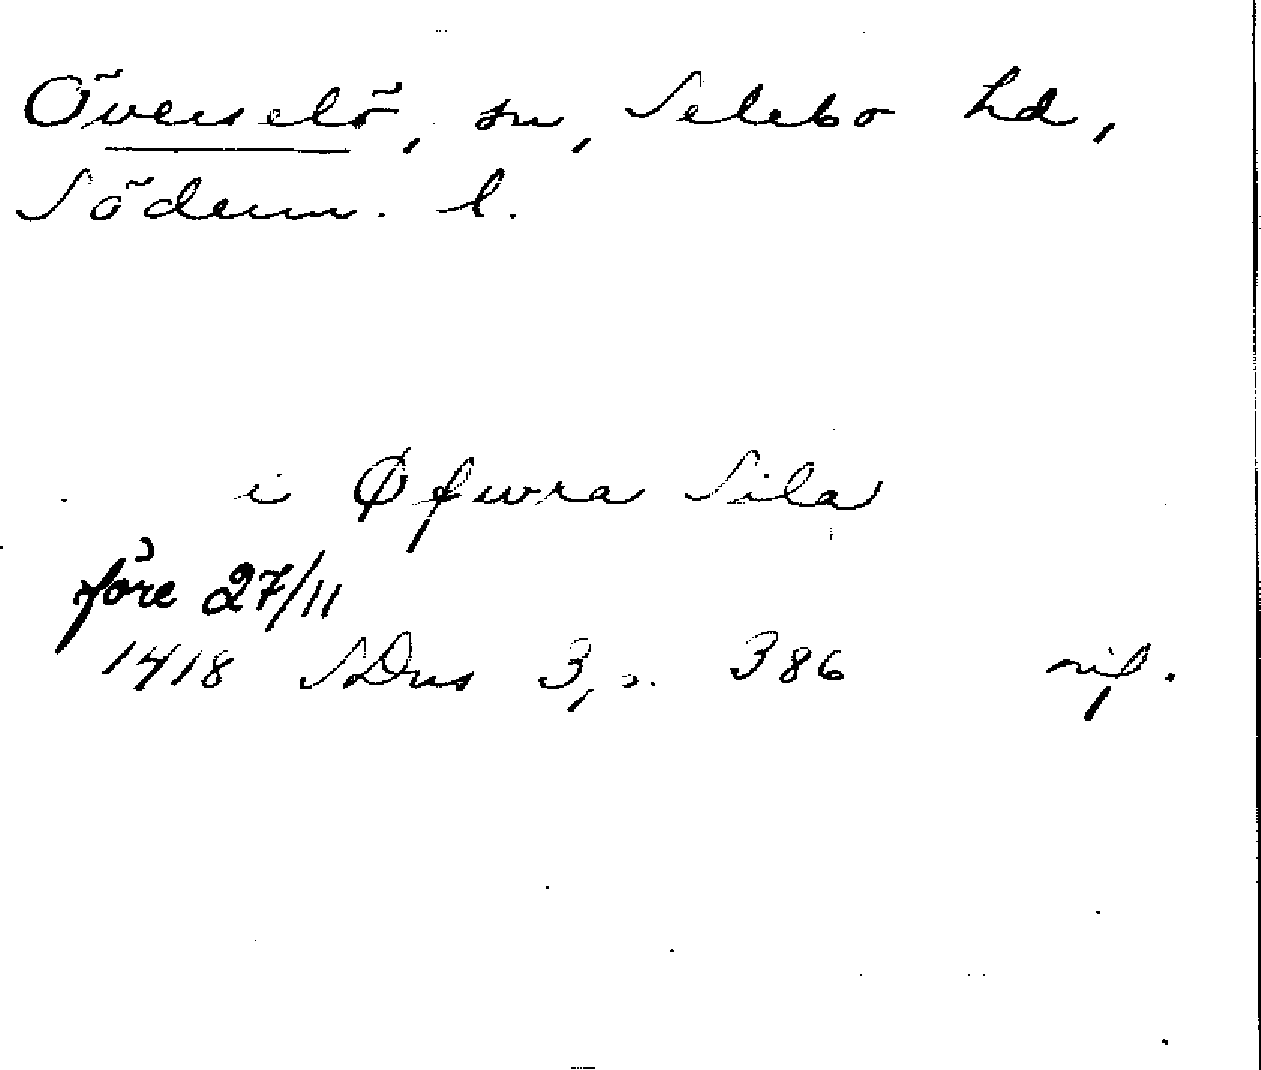 Överselö, sn, Selebo hd,
Söderm. l.
i Øfwra Sila
före 27/11
1418 SDns 3, s. 386